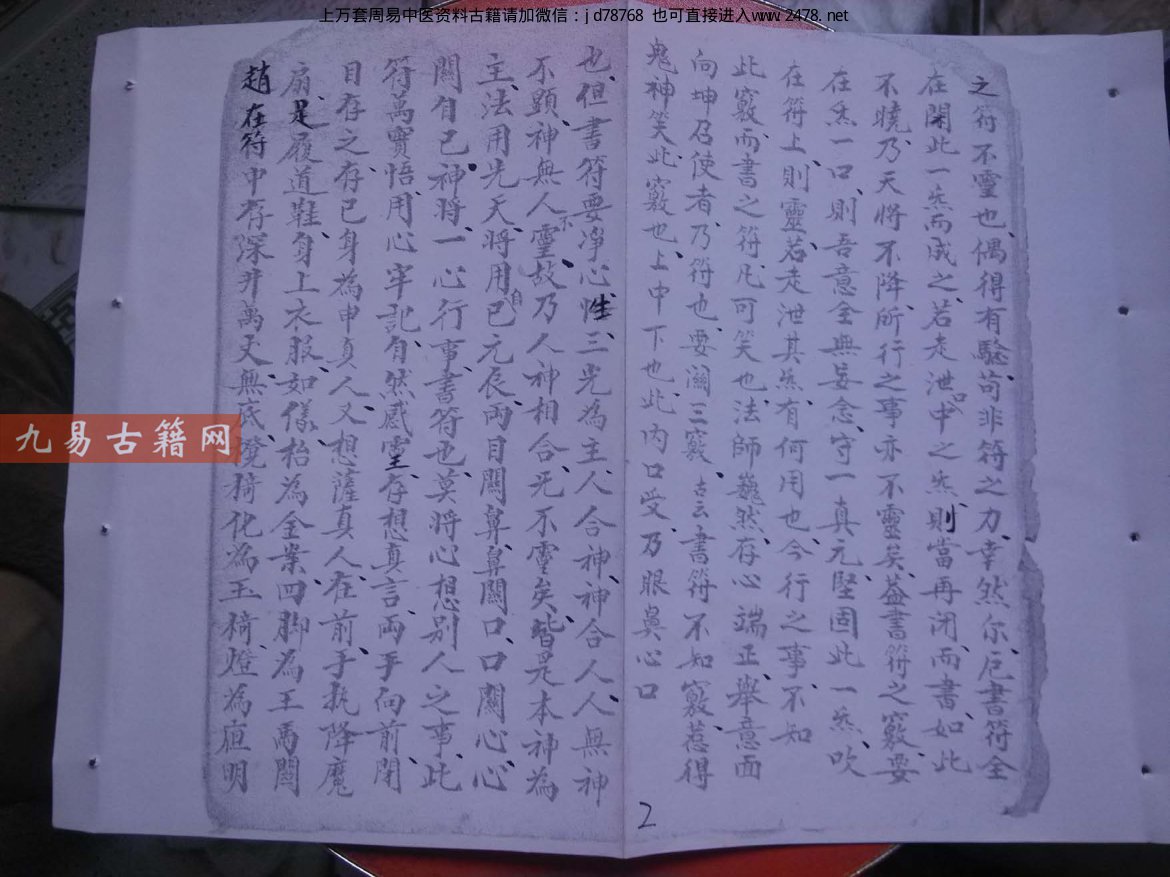 上万套周易中医资料古籍请加微信：jd78768 也可直接进入www.2478.net
之符不靈也、偶得有驗、苟非符之力、幸然尔、凡書符全
在閉此一炁而成之、若走泄中口之炁、則當再闭、而書、如此
不曉、乃天將不降、所行之事亦不靈矣、盖書符之竅、要
在炁一口、則吾意全無妄念、守一真元、堅固此一炁、吹
在符上、則靈、若走泄其炁、有何用也、今行之事、不知
此竅、而書之符、凡可笑也、法師巍然、存心端正、舉意面
向坤召使者、乃符也、要闢三竅、古云書符不知竅、惹得
鬼神笑、此竅也、上中下也、此内口受、乃眼鼻心口
2
也、但書符要净心性、三光為主、人合神、神合人、人無神
不顯、神無人不靈、故乃人神相合、无不靈矣、皆是本神為
主、法用先天、將用自己元辰、兩目關鼻、鼻關口、口關心、心
關自己神將、一心行事、書符也、莫將心想别人之事、此
符萬寶悟、用心牢記、自然感靈、存想真言、兩手向前、閉
目存之、存已身為申真人、又想薩真人、在前、手执降魔
扇、是履道鞋、身上衣服、如儀、枱為金案、四脚為王馬閻
趙在符中、存深井萬丈、無底、櫈椅化為玉椅、燈為疸明
九易古籍网